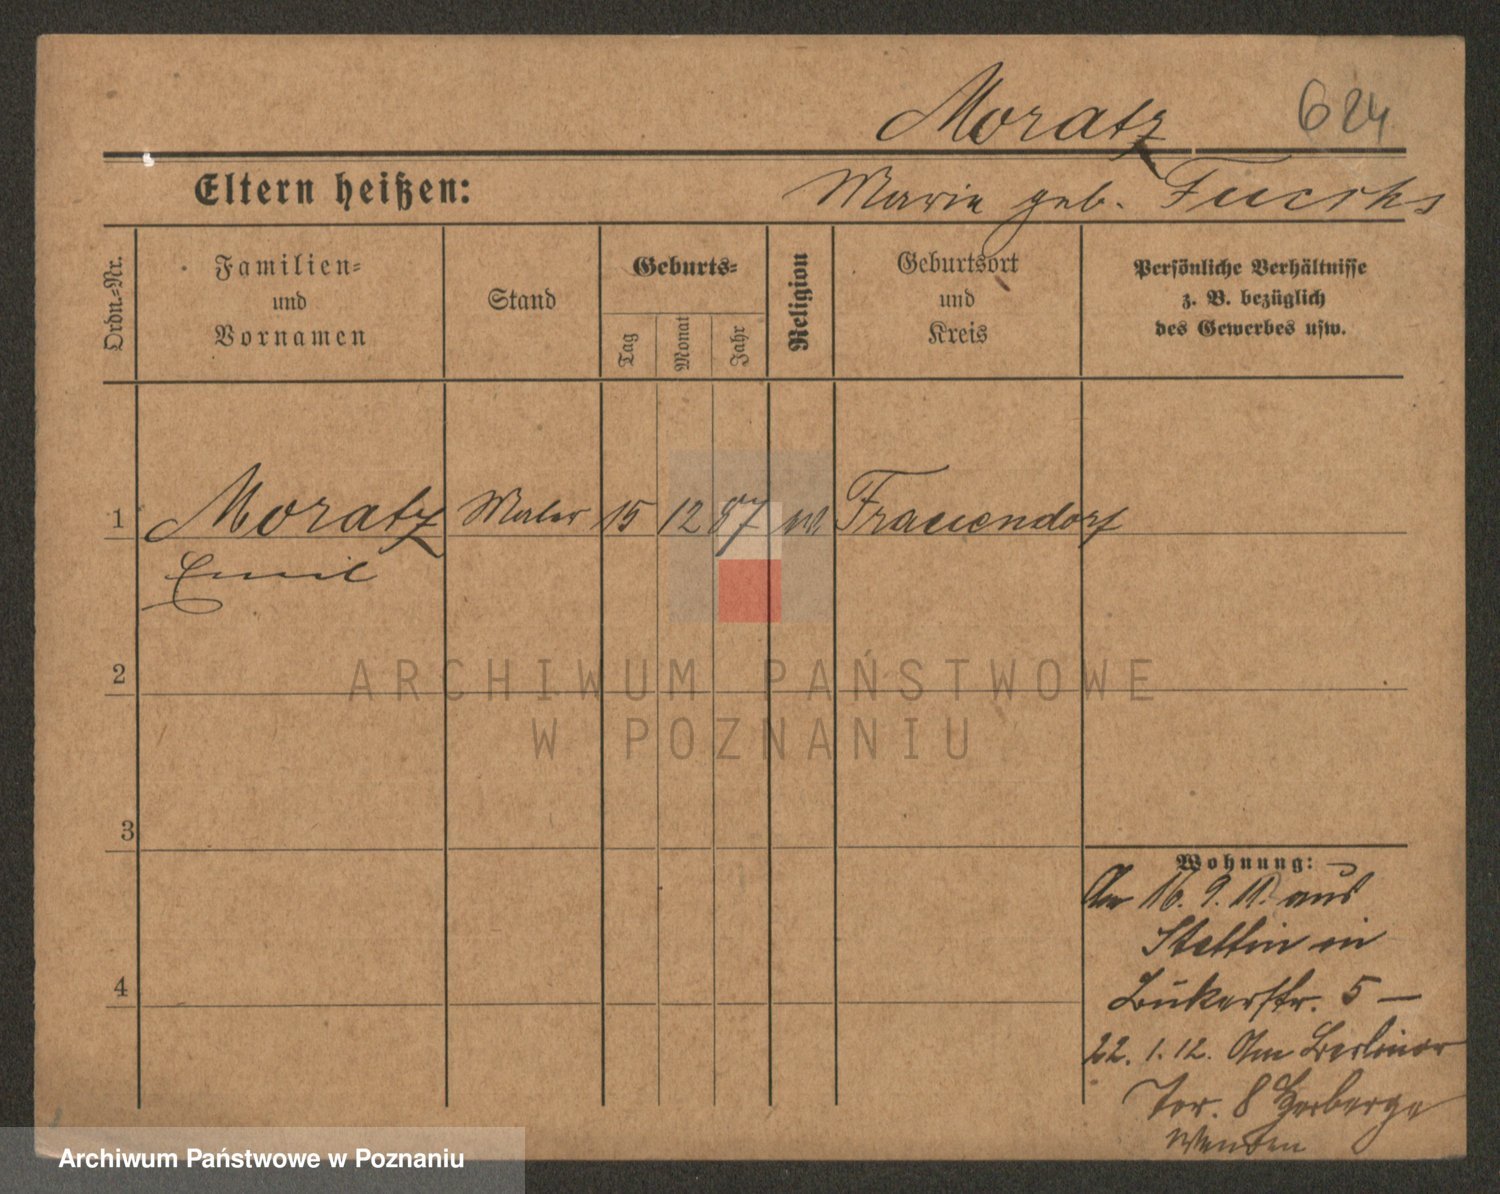 Moratz 624
Eltern heißen: Marie geb. Fuchs
Ordn.-Nr.
Familien-
und
Vornamen
Stand
Geburts-
Tag
Monat
Jahr
Religion
Geburtsort
und
Kreis
Persönliche Verhältnisse
z. B. bezüglich
des Gewerbes usw.
1 Moratz Maler 15 12 87 Frauendorf
Emil
2
3
4
Wohnung:
Am 16. 9. 11. aus
Stettin in
Bükerstr. 5 —
22. 1. 12. Am Berliner
Tor. 8 Herberge
ARCHIWUM PAŃSTWOWE
W POZNANIU
Archiwum Państwowe w Poznaniu